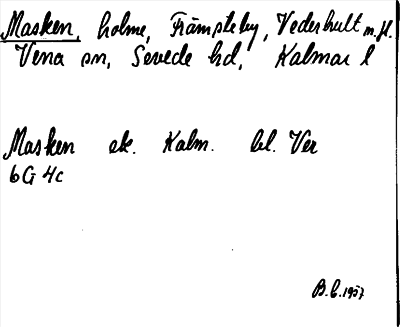 Masken, holme, Främsteby, Vederhult m.fl.
Vena sn, Sevede hd, Kalmar l
Masken ek. Kalm. bl. Ver
6G 4c
B.C. 1957